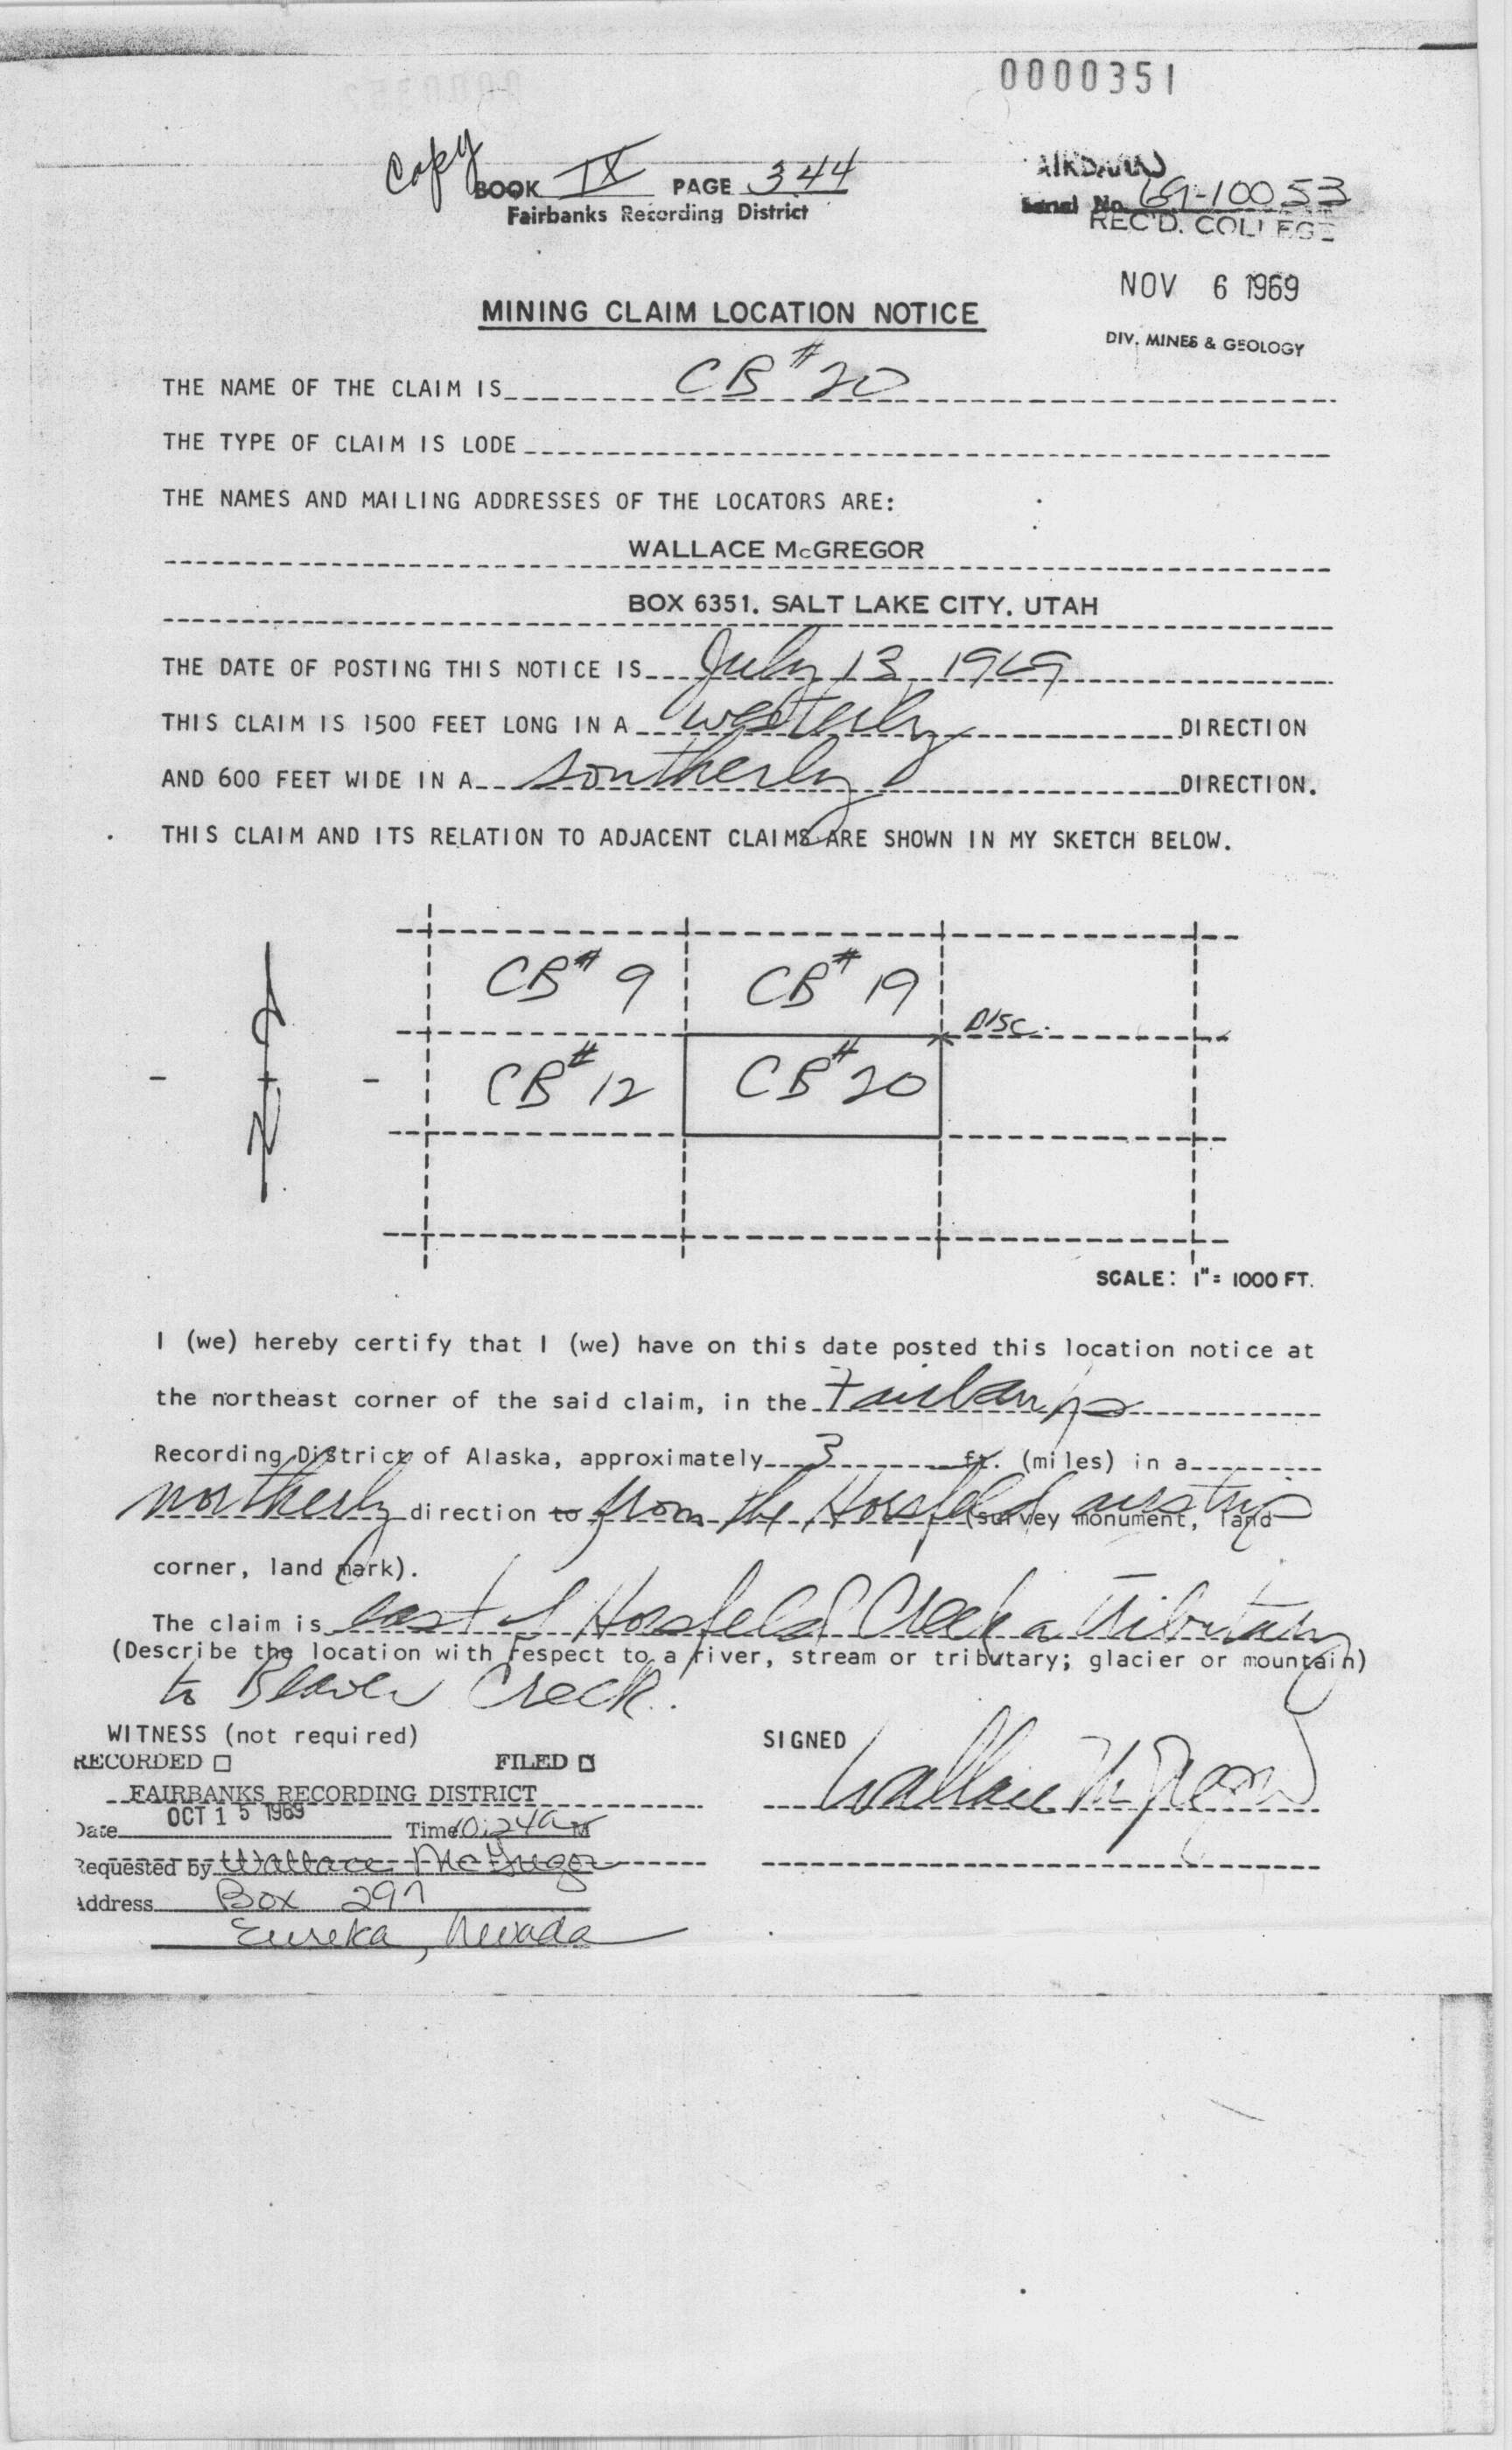 0000351
Copy
BOOK IX PAGE 344
Fairbanks Recording District
Serial No. 69-10053
REC'D. COLLEGE
NOV 6 1969
DIV. MINES & GEOLOGY
MINING CLAIM LOCATION NOTICE
THE NAME OF THE CLAIM IS CB #20
THE TYPE OF CLAIM IS LODE
THE NAMES AND MAILING ADDRESSES OF THE LOCATORS ARE:
WALLACE McGREGOR
BOX 6351, SALT LAKE CITY, UTAH
THE DATE OF POSTING THIS NOTICE IS July 13, 1969
THIS CLAIM IS 1500 FEET LONG IN A westerly DIRECTION
AND 600 FEET WIDE IN A southerly DIRECTION.
THIS CLAIM AND ITS RELATION TO ADJACENT CLAIMS ARE SHOWN IN MY SKETCH BELOW.
CB# 9 CB# 19
DISC.
CB# 12 CB# 20
N
SCALE: 1"= 1000 FT.
I (we) hereby certify that I (we) have on this date posted this location notice at
the northeast corner of the said claim, in the Fairbanks
Recording District of Alaska, approximately 3 ft. (miles) in a
northerly direction to from the Horsfeld airstrip (survey monument, land
corner, land mark).
The claim is east of Horsfeld Creek a tributary
(Describe the location with respect to a river, stream or tributary; glacier or mountain)
to Beaver Creek.
WITNESS (not required) SIGNED
RECORDED ☐ FILED ☐
Wallace McGregor
FAIRBANKS RECORDING DISTRICT
OCT 15 1969
Date Time 10:24 a M
Requested by Wallace McGregor
Address Box 297
Eureka, Nevada